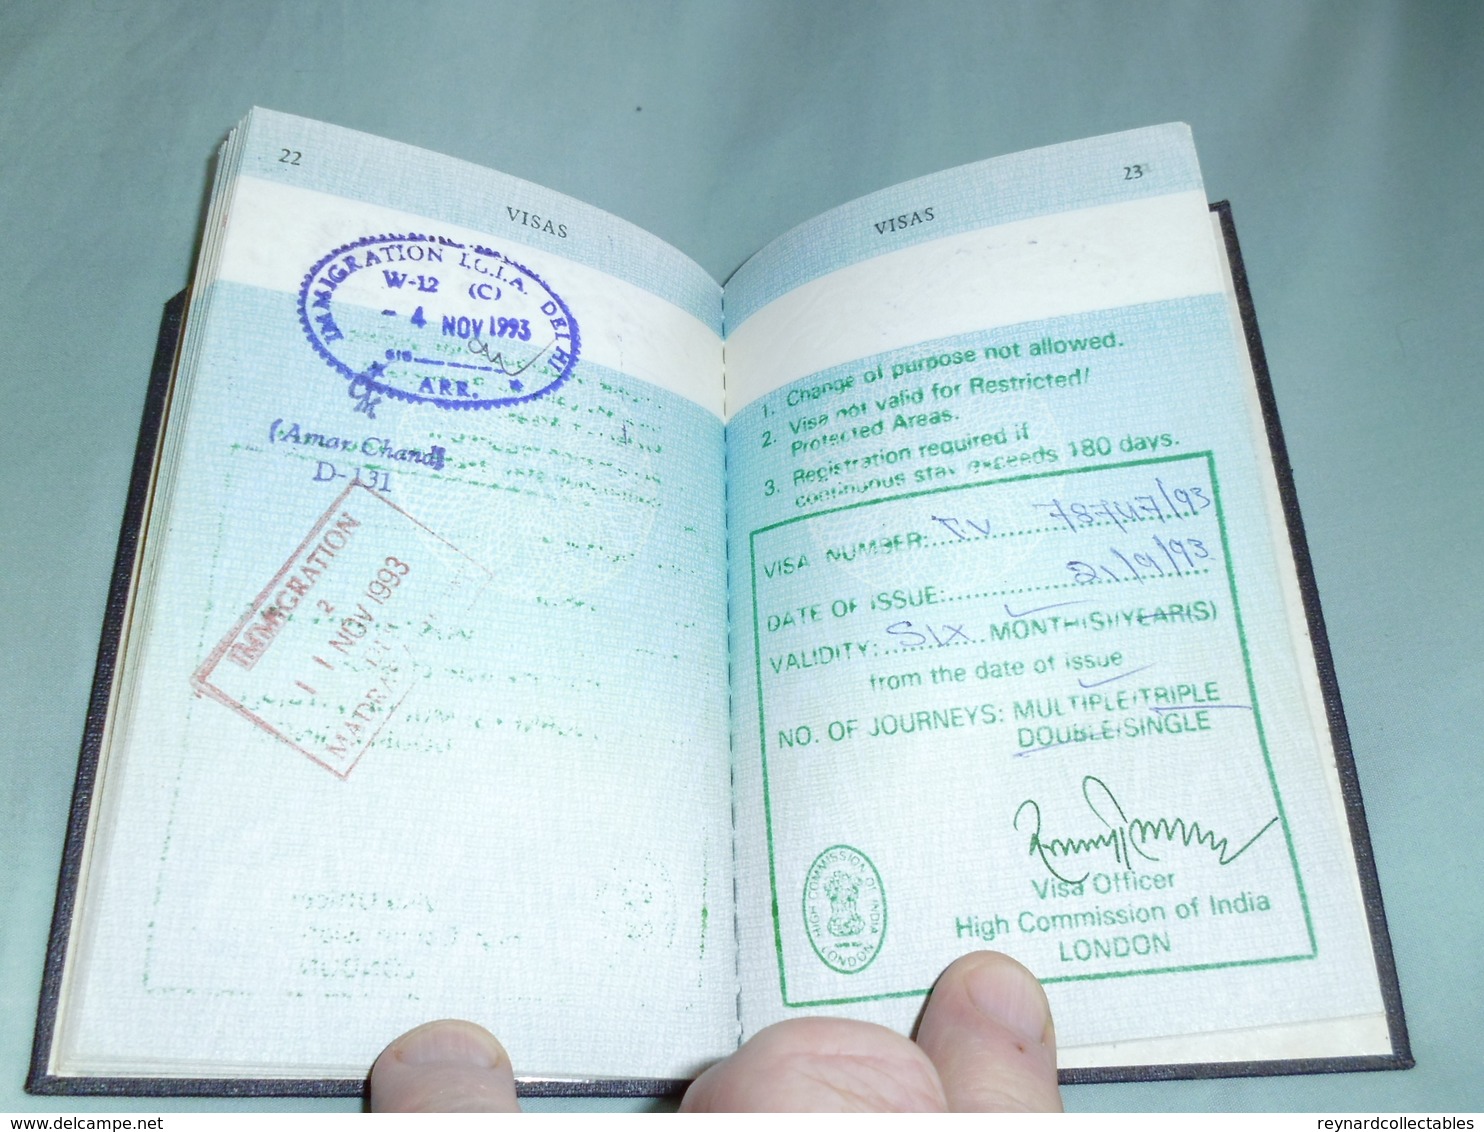 22
VISAS
IMMIGRATION I.G.I.A. DELHI
W-12 (C)
- 4 NOV 1993
SIG
* ARR. *
(Amar Chand)
D-131
IMMIGRATION
11 NOV 1993
MADRAS
23
VISAS
1. Change of purpose not allowed.
2. Visa not valid for Restricted/
Protected Areas.
3. Registration required if
continuous stay exceeds 180 days.
VISA NUMBER: 78747/93
DATE OF ISSUE: 21/9/93
VALIDITY: SIX MONTH(S)/YEAR(S)
from the date of issue
NO. OF JOURNEYS: MULTIPLE/TRIPLE
DOUBLE/SINGLE
HIGH COMMISSION OF INDIA
LONDON
Visa Officer
High Commission of India
LONDON
delcampe.net
reynardcollectables